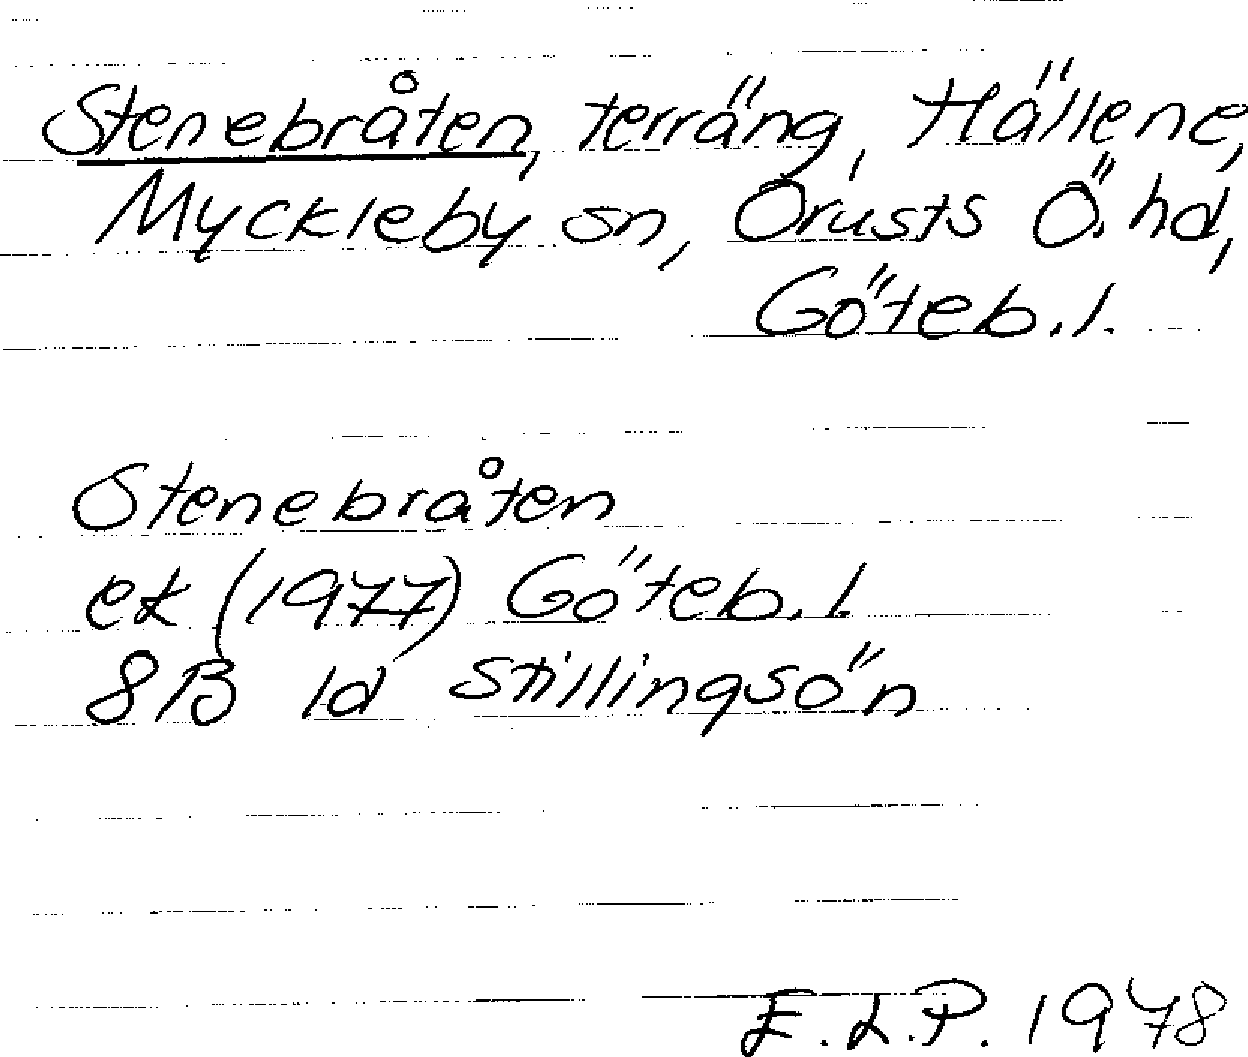 Stenebråten, terräng, Hällene,
Myckleby sn, Orusts Ö. hd,
Göteb. l.
Stenebråten
ek (1977) Göteb. l.
8B 1d Stillingsön
E.L.P. 1978